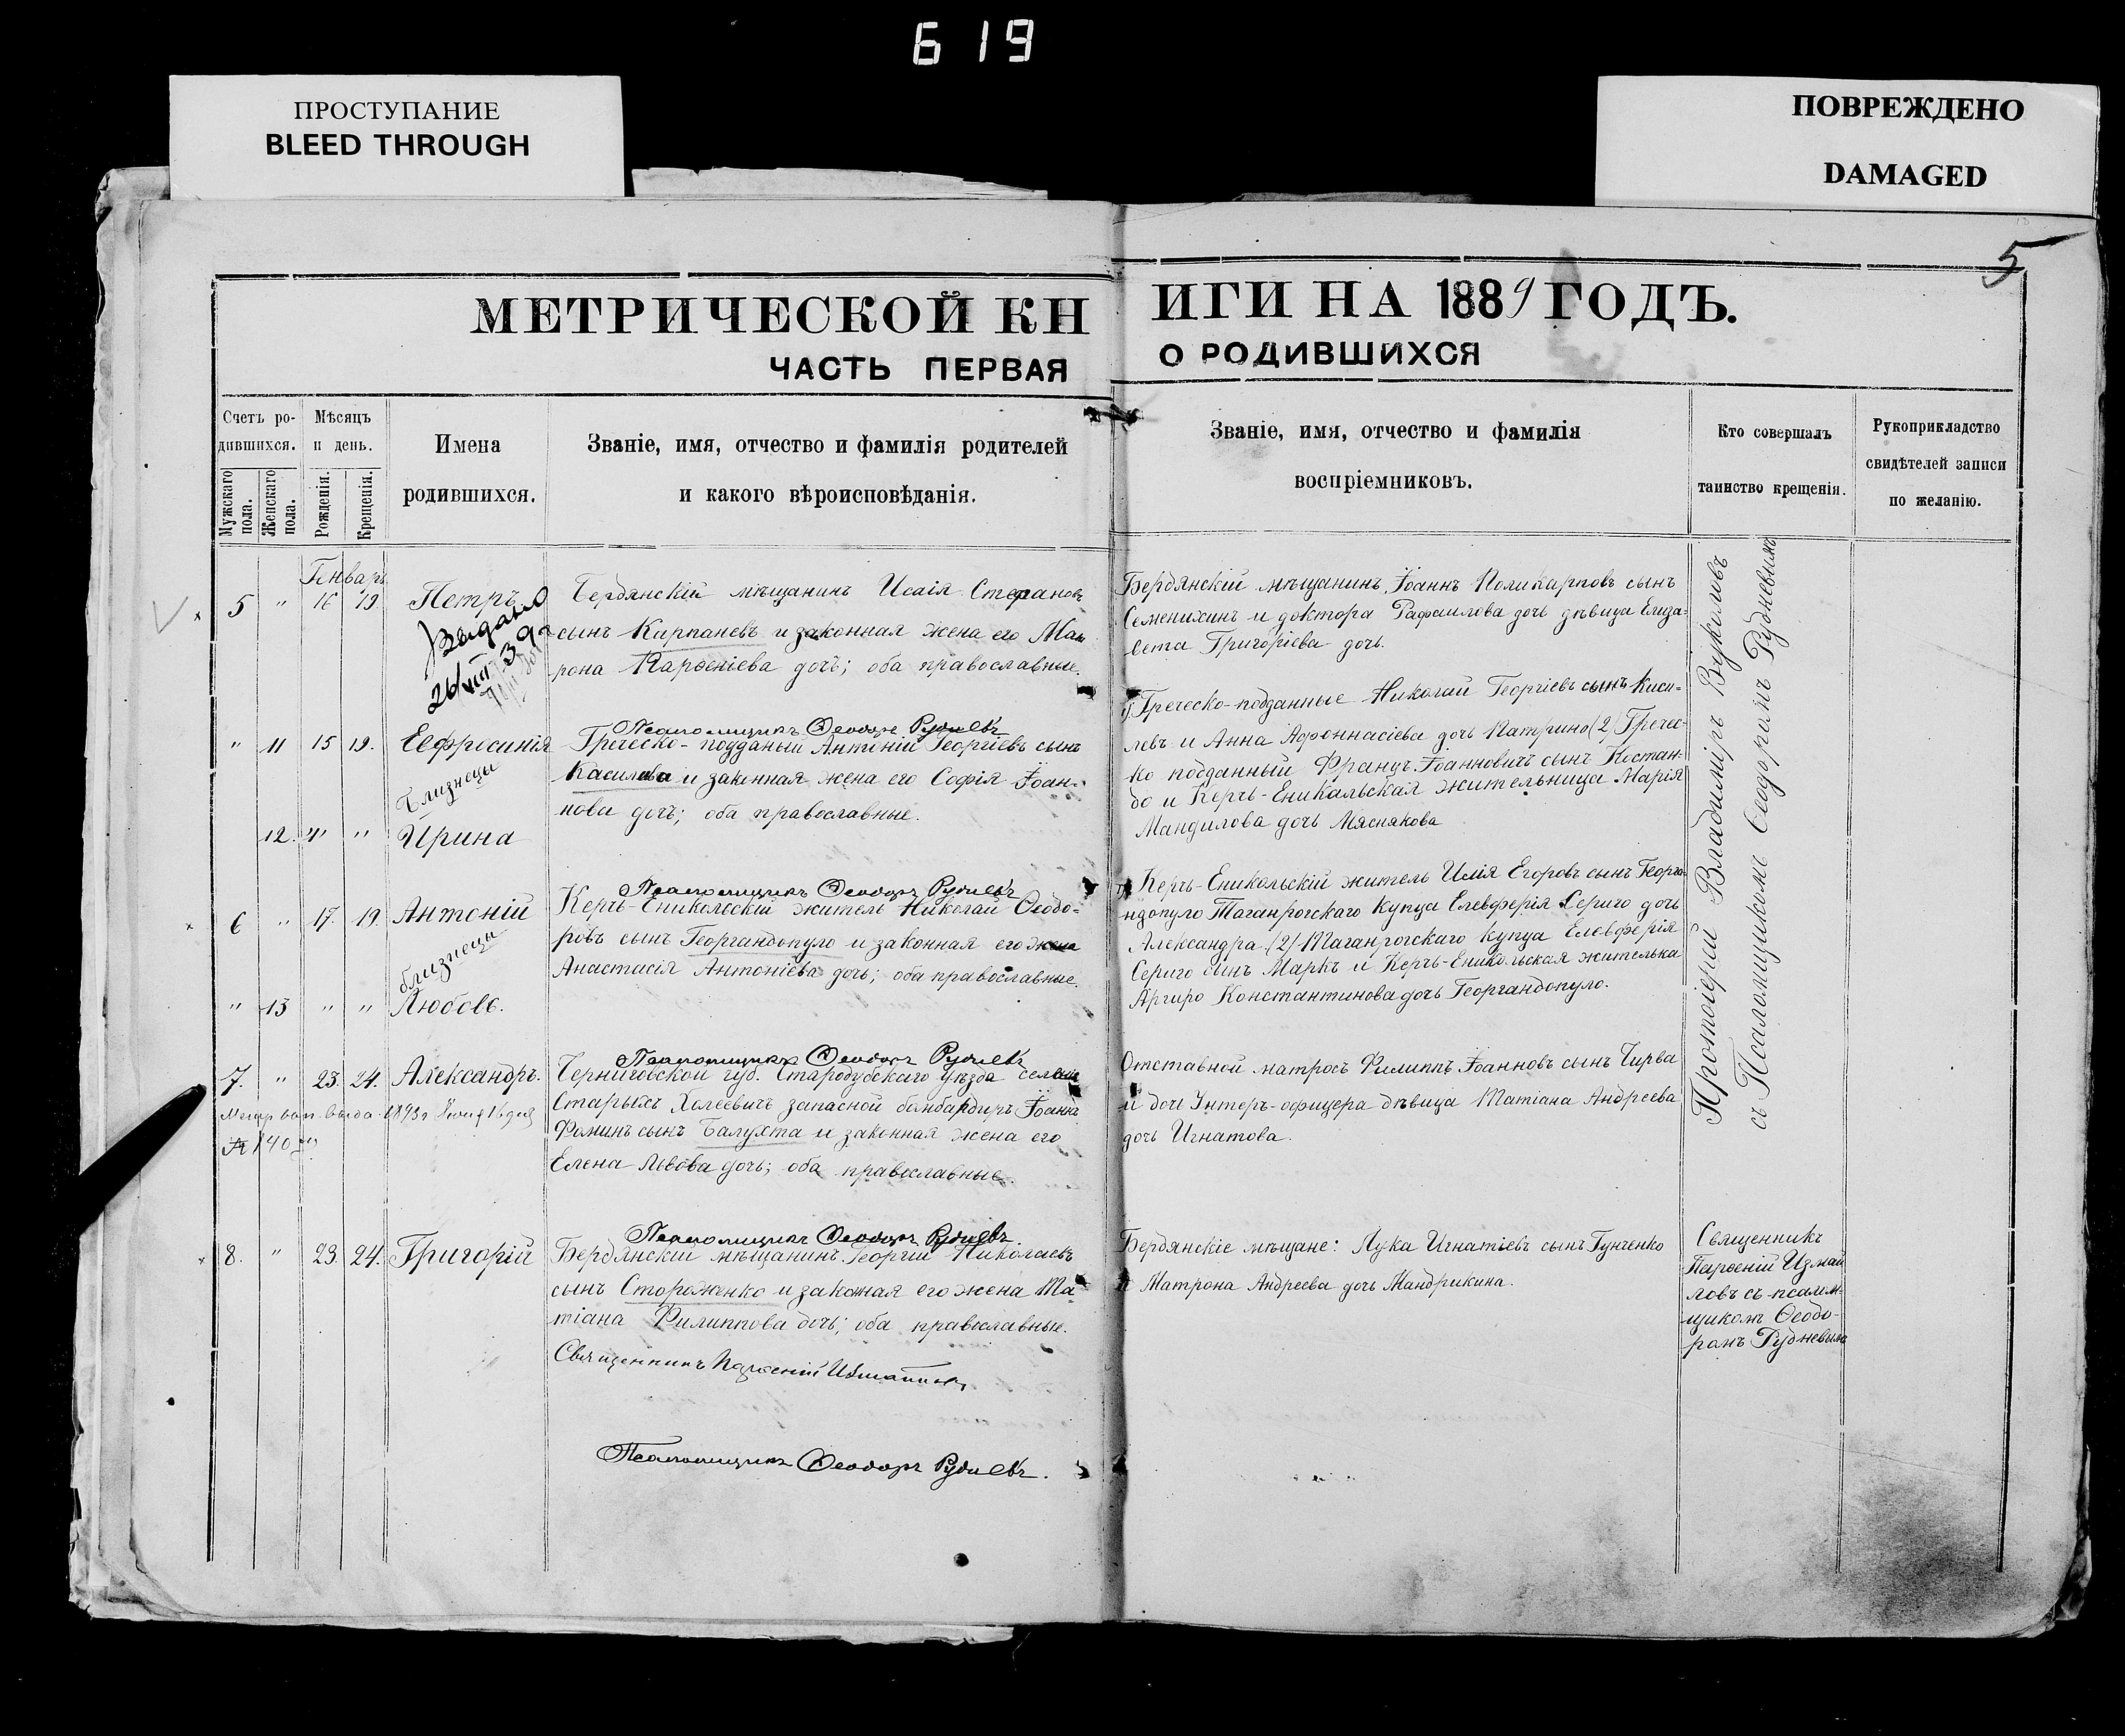 619
ПРОСТУПАНИЕ
BLEED THROUGH
ПОВРЕЖДЕНО
DAMAGED
5
МЕТРИЧЕСКОЙ КНИГИ НА 1889 ГОДЪ.
ЧАСТЬ ПЕРВАЯ О РОДИВШИХСЯ
Счетъ ро-
дившихся.
Мужскаго пола.
Женскаго пола.
Мѣсяцъ
и день.
Рожденія.
Крещенія.
Имена
родившихся.
Званіе, имя, отчество и фамилія родителей
и какого вѣроисповѣданія.
Званіе, имя, отчество и фамилія
воспріемниковъ.
Кто совершалъ
таинство крещенія.
Рукоприкладство
свидѣтелей записи
по желанію.
Генварь
5 " 16 19 Петръ
Выдано
26/VIII
Бердянскій мѣщанинъ Исаія Стефановъ
сынъ Кирпаневъ и законная жена его Мат
рона Парѳеніева дочь; оба православные.
Бердянскій мѣщанинъ Іоаннъ Поликарповъ сынъ
Семенихинъ и доктора Рафаилова дочь дѣвица Елиза-
вета Григоріева дочь.
Псаломщикъ Ѳеодоръ Рудневъ
" 11 15 19. Евфросинія
Близнецы
12. " " Ирина
Греческо-подданый Антоній Георгіевъ сынъ
Касилева и законная жена его Софія Іоан-
нова дочь; оба православные.
Греческо-подданные Николай Георгіевъ сынъ Киси-
левъ и Анна Афоннасіева дочь Патрино (2) Гречес-
ко подданный Францъ Іоанновичъ сынъ Костан-
до и Керчь-Еникальская жительница Марія
Мандилова дочь Мяснякова
Псаломщикъ Ѳеодоръ Рудневъ
6 " 17. 19. Антоній
близнецы
" 13 " " Любовь.
Керчь-Еникольскій житель Николай Ѳеодо-
ровъ сынъ Георгандопуло и законная его жена
Анастасія Антоніева дочь; оба православные.
Керчь-Еникольскій житель Илія Егоровъ сынъ Георга-
ндопуло Таганрогскаго купца Елевферія Сериго дочь
Александра. (2) Таганрогскаго купца Елевферія
Сериго сынъ Маркъ и Керчь-Еникольская жителька
Аргиро Константинова дочь Георгандопуло.
Псаломщикъ Ѳеодоръ Рудневъ
7. " 23. 24. Александръ.
№ 140
Черниговской губ. Стародубскаго уѣзда села
Старыхъ Халеевичъ запасной бомбардиръ Іоаннъ
Фоминъ сынъ Балухта и законная жена его
Елена Львова дочь; оба православные.
Отставной матросъ Филиппъ Іоанновъ сынъ Чирва
и дочь Унтеръ-офицера дѣвица Татіана Андреева
дочь Игнатова.
Протоіерей Владиміръ Вуколовъ
съ Псаломщикомъ Ѳеодоромъ Рудневымъ
Псаломщикъ Ѳеодоръ Рудневъ.
8. " 23. 24. Григорій
Бердянскій мѣщанинъ Георгій Николаевъ
сынъ Стороженко и законная его жена Та-
тіана Филиппова дочь; оба православные.
Бердянскіе мѣщане: Лука Игнатіевъ сынъ Гунченко
и Матрона Андреева дочь Мандрикина.
Священникъ
Парѳеній Измай
ловъ съ псалом-
щикомъ Ѳеодо-
ромъ Рудневымъ
Священникъ Парѳеній Измаиловъ
Псаломщикъ Ѳеодоръ Рудневъ.